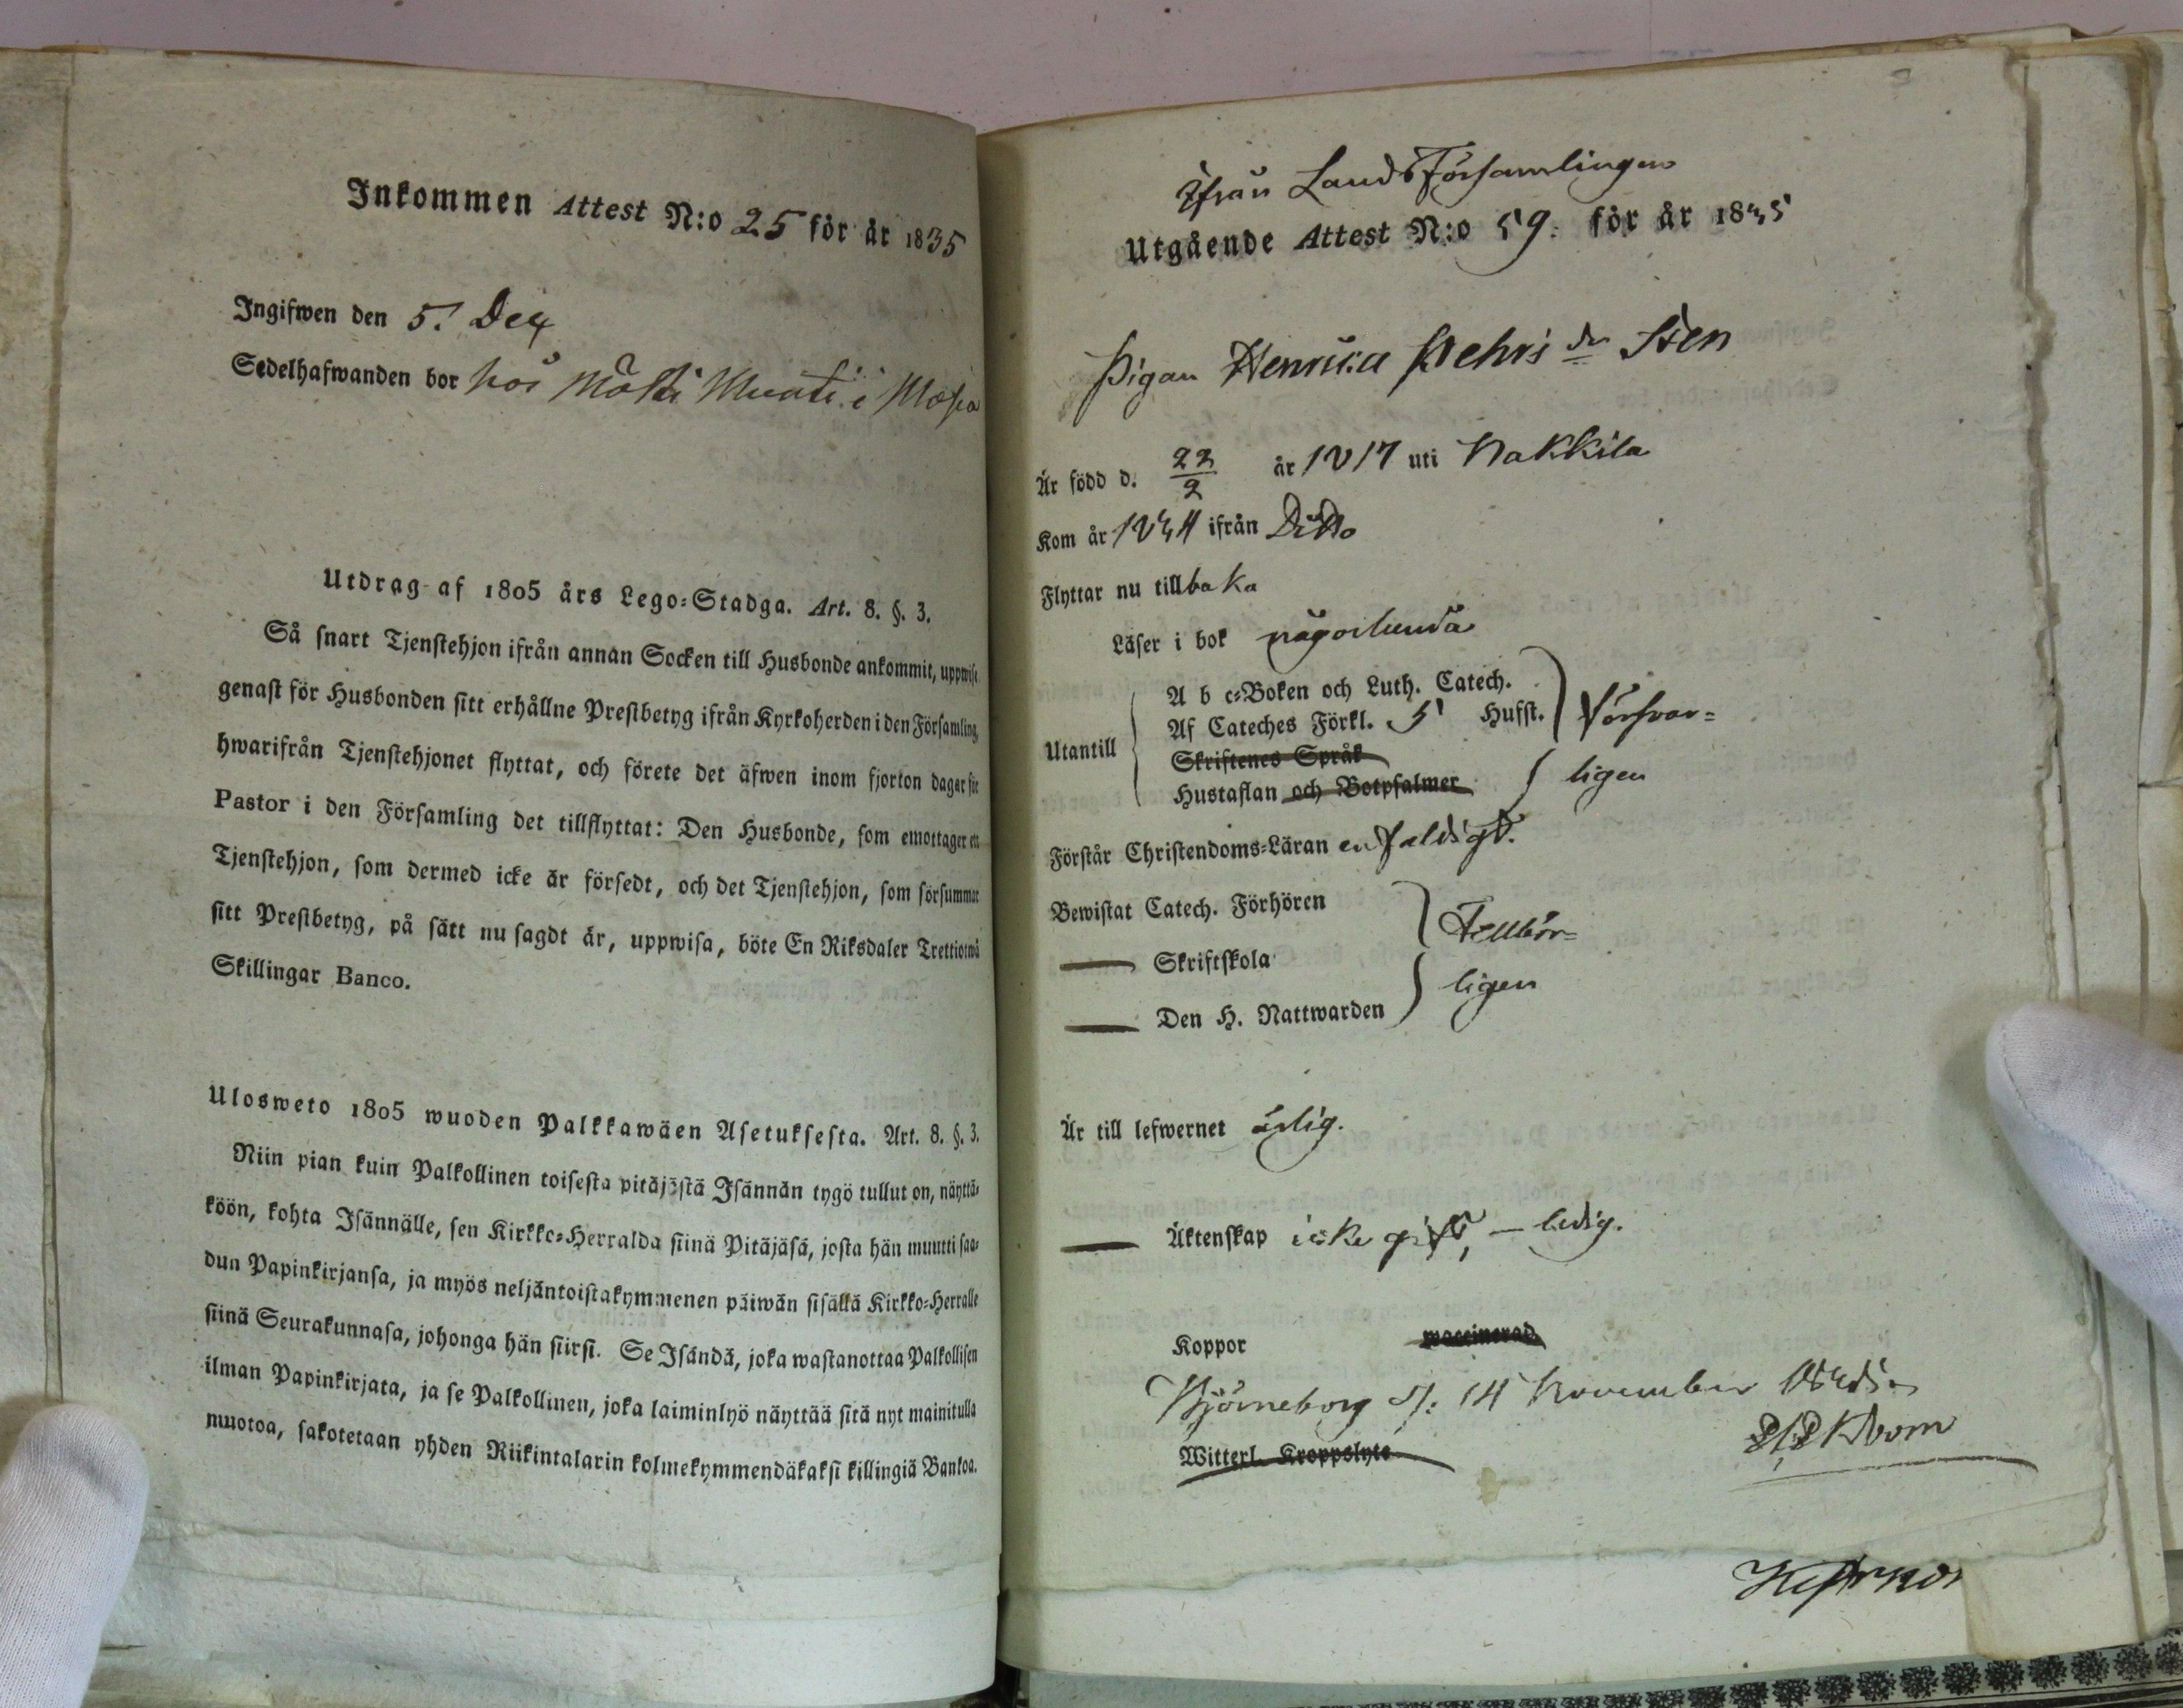 Inkommen Attest N:o 25 för år 1835
Ingifwen den 5. Dec
Sedelhafwanden bor hos Måtti i
Utdrag af 1805 års Lego-Stadga. Art. 8. §. 3.
Så snart Tjenstehjon ifrån annan Socken till Husbonde ankommit, uppwise
genast för Husbonden sitt erhållne Prestbetyg ifrån Kyrkoherden i den Församling,
hwarifrån Tjenstehjonet flyttat, och förete det äfwen inom fjorton dagar för
Pastor i den Församling det tillflyttat: Den Husbonde, som emottager en
Tjenstehjon, som dermed icke är försedt, och det Tjenstehjon, som försummar
sitt Prestbetyg, på sätt nu sagdt är, uppwisa, böte En Riksdaler Trettiotwå
Skillingar Banco.
Ulosweto 1805 wuoden Palkkawäen Asetuksesta. Art. 8. §. 3.
Niin pian kuin Palkollinen toisesta pitäjästä Isännän tygö tullut on, näyttä-
köön, kohta Isännälle, sen Kirkko-Herralda siinä Pitäjäsä, josta hän muutti saa-
dun Papinkirjansa, ja myös neljäntoistakymmenen päiwän sisällä Kirkko-Herralle
siinä Seurakunnasa, johonga hän siirsi. Se Isändä, joka wastanottaa Palkollisen
ilman Papinkirjata, ja se Palkollinen, joka laiminlyö näyttää sitä nyt mainitulla
muotoa, sakotetaan yhden Riikintalarin kolmekymmendäkaksi killingiä Bankoa.
Ifrån Lands Församlingen
Utgående Attest N:o 59. för år 1835
Pigan Henrica Pehrs dr Sten
Är född d. 22/2 år 1817 uti Nakkila
Kom år 1834 ifrån Ditto
Flyttar nu tillbaka
Läser i bok någorlunda
A b c-Boken och Luth. Catech.
Af Cateches Förkl. 5 Hufst. Försvar-
Utantill
Skriftenes Språk
Hustaflan och Botpsalmer ligen
Förstår Christendoms-Läran enfaldigt.
Bewistat Catech. Förhören
Tillbör-
— Skriftskola
ligen
— Den H. Nattwarden
Är till lefwernet ärlig.
— Äktenskap icke gift, — ledig.
Koppor waccinerad
Björneborg d. 14 November 1835.
Witterl. Kroppslyte